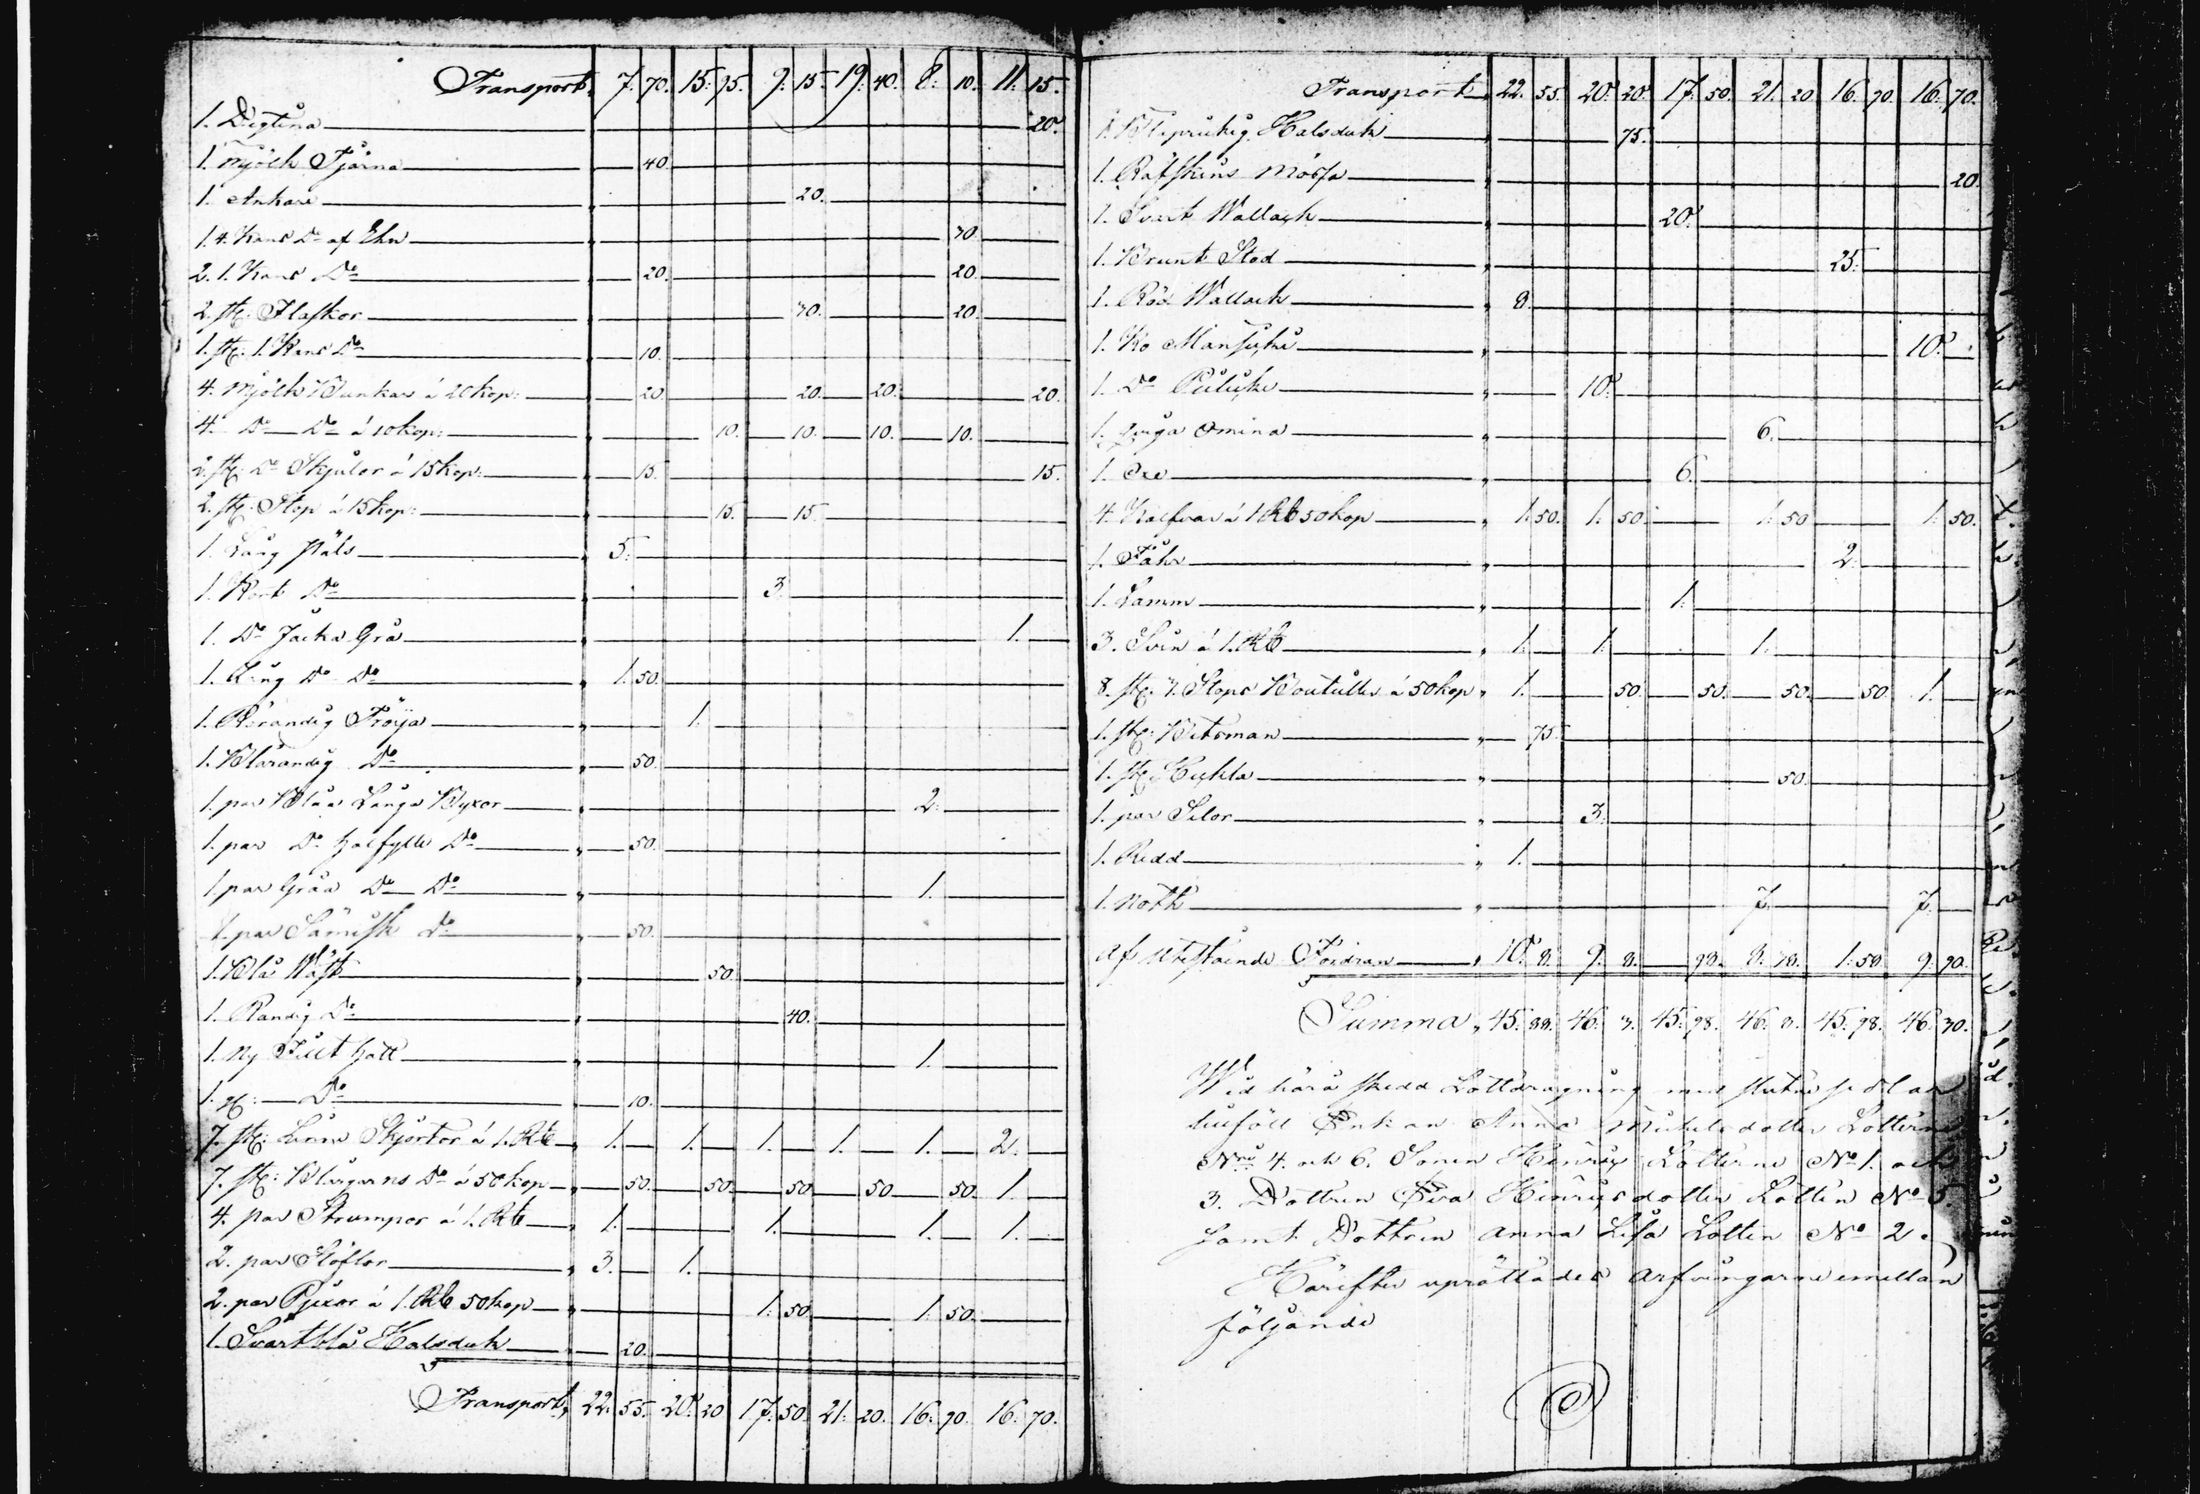 Transport, 7. 70. 15. 95. 9. 15. 19. 40. 8. 10. 11. 15.
1. Degtina 20.
1. Mjölk Tjärna 40.
1. Ankare 20.
1. 4. Kans Do af Ehn 30.
2. 1. Kans Do 20. 20.
2. st: Flaskor 30. 20.
1. st: 1. Kans Do 10.
4. Mjölk Bunkar á 20 kop: 20. 20. 20. 20.
4. Do Do á 10 kop: 10. 10. 10. 10.
2. st: Do Skjulor á 15 kop: 15. 15.
2. st: Stop á 15 kop: 15. 15.
1. Lång Päls 5.
1. Kort Do 3.
1. Do Jacka Grå 1.
1. Lång Do Do 1. 50.
1. Rörandig Tröija 1.
1. Blårandig Do 50.
1. par Blåa Långa Byxor 2.
1. par Do halfylle Do 50.
1. par Gråa Do Do 1.
1. par Sämisk Do 50.
1. Blå Wäst 50.
1. Randig Do 40.
1. Ny Filt hatt 1.
1. Do 10.
7. st: Linne Skjortor á 1. Rb 1. 1. 1. 1. 1. 2.
7. st: Blårgarns Do á 50 kop 50. 50. 50. 50 50. 1.
4. par Strumpor á 1. Rb 1. 1. 1. 1.
2. par Stöflor 3. 1.
2. par Pjexor á 1. Rb 50 kop 1. 50. 1. 50.
1. Svartblå Halsduk 20.
Transport, 22. 55. 20. 20 17. 50. 21. 20. 16. 70. 16. 70.
Transport 22. 55. 20. 20. 17. 50. 21. 20 16. 70. 16. 70.
1. Halsduk 75.
1. Räfskins Mössa 20.
1. Svart Wallach 20.
1. Brunt Stod 25.
1. Röd Wallach 8.
1. Ko Mansicke 10.
1. Do 10.
1. Qviga Omina 6.
1. Oxe 6.
4. Kalfvar á 1 Rb 50 kop 1. 50. 1. 50. 1. 50 1. 50.
1. Fåhr 2.
1. Lamm 1.
3. Svin á 1. Rb 1. 1. 1.
8. st: Stops Boutiller á 50 kop 1. 50. 50. 50. 50. 1.
1. st: Bitsman 75.
1. st Hechla 50.
1. par Selor 3.
1. Redd 1.
1. Noth 7. 7.
Af Utestående Fordran 10. 8. 9. 8. 98. 8. 78. 1. 50. 9. 90.
Summa, 45. 88. 46. 3. 45. 98. 46. 8. 45. 98. 46. 30.
Wid härå skedd Lottdragning med slutne sedlar
tillföll Enkan Anna Michelsdotter Lotterne
Nris 4. och 6. Sonen Henrix Lotterne No 1. och
3. Dottren Eva Henrixsdotter Lotten No 5
samt Dottren Anna Lisa Lotten No 2.
Härefter uprättades Arfvingarne emellan
följande